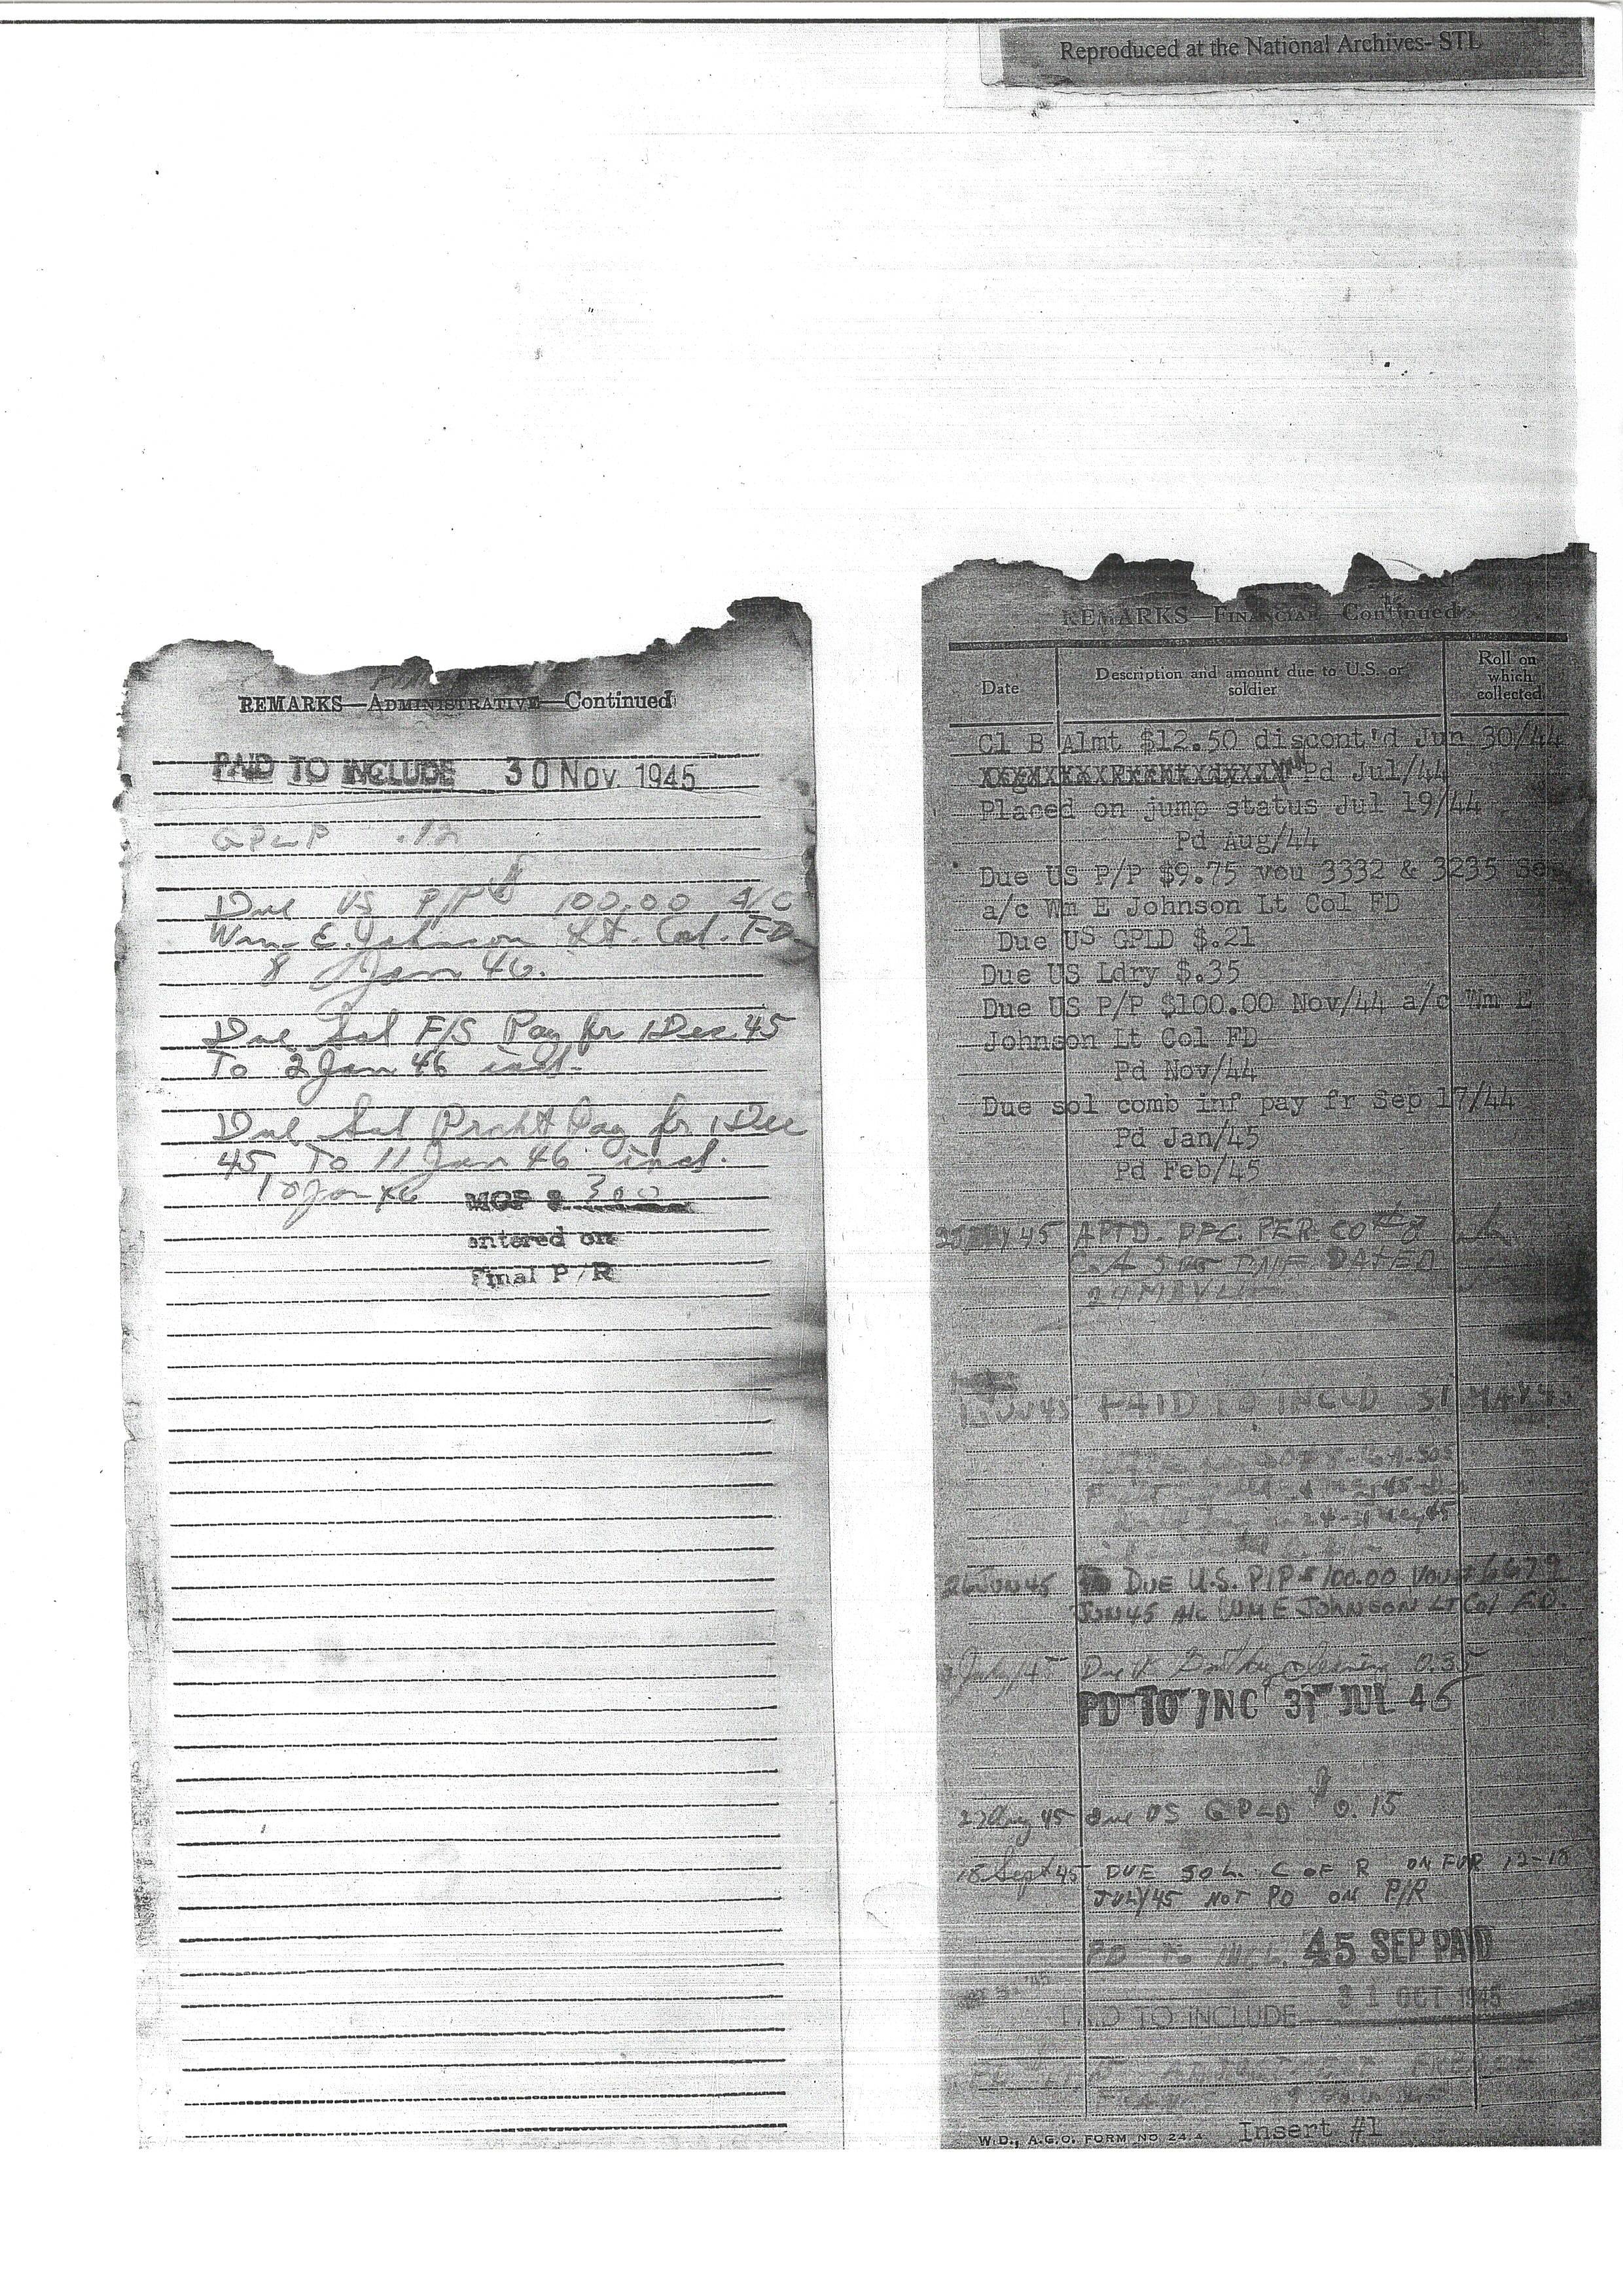 Reproduced at the National Archives- STL
REMARKS—ADMINISTRATIVE—Continued
PAID TO INCLUDE 30 Nov. 1945
GPLP .12
Due US P/P $ 100.00 A/C
Wm. E. Johnson Lt. Col. FD
8 Jan 46.
Due Sol F/S Pay fr 1 Dec 45
To 2 Jan 46 incl.
Due Sol Pracht Pay fr 1 Dec
45 To 11 Jan 46 incl.
10 Jan 46 MOP $ 300
entered on
final P/R
REMARKS—FINANCIAL—Continued
Date
Description and amount due to U.S. or soldier
Roll on which collected
Cl B Almt $12.50 discont'd Jun 30/44
Pd Jul/44
Placed on jump status Jul 19/44
Pd Aug/44
Due US P/P $9.75 vou 3332 & 3235 Sep
a/c Wm E Johnson Lt Col FD
Due US GPLD $.21
Due US Ldry $.35
Due US P/P $100.00 Nov/44 a/c Wm E
Johnson Lt Col FD
Pd Nov/44
Due sol comb inf pay fr Sep 17/44
Pd Jan/45
Pd Feb/45
45 APTD. PFC. PER CO
DATED
PAID TO INCLD 31 MAY 45
26 JUN 45 DUE U.S. P/P $100.00 VOU # 6679
JUN 45 A/C WM E JOHNSON LT Col F.D.
July/45 Due cleaning 0.35
PD TO INC 31 JUL 45
27 Aug 45 due US GPLD $0.15
18 Sept 45 DUE SOL. C OF R ON FUR 12-18
JULY/45 NOT PD ON P/R
PD To INCL. 45 SEP PAID
PAID TO INCLUDE 31 OCT 1945
W.D., A.G.O. FORM NO 24 A Insert #1